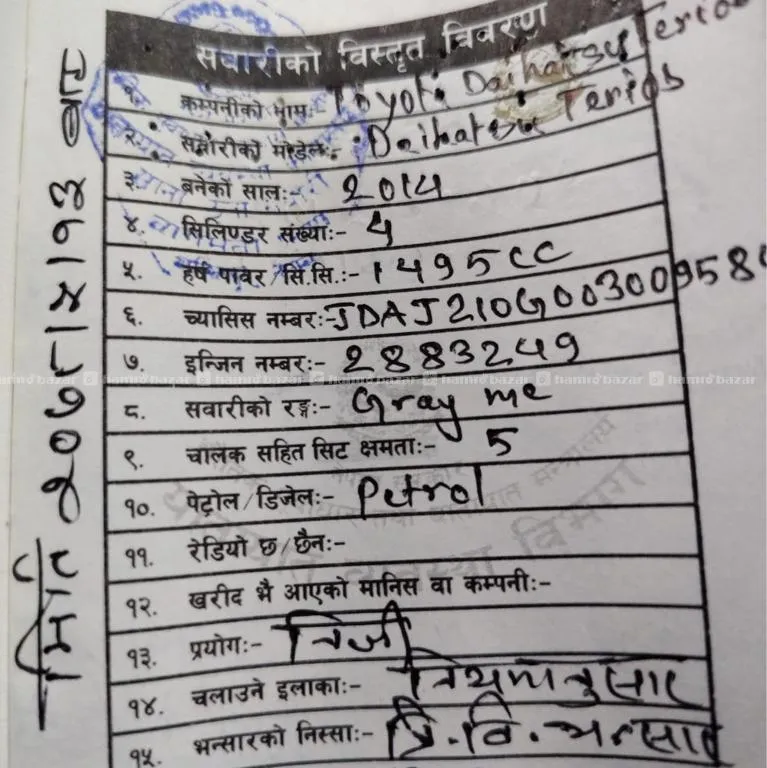 सवारीको विस्तृत विवरण
१. कम्पनीको नाम:- Toyota Daihatsu Terios
२. सवारीको मोडेल:- Daihatsu Terios
३. बनेको साल:- 2014
४. सिलिण्डर संख्या:- 4
५. हर्ष पावर/सि.सि.:- 1495CC
६. च्यासिस नम्बर:- JDAJ210G00300958
७. इन्जिन नम्बर:- 2883249
८. सवारीको रङ्ग:- Gray me
९. चालक सहित सिट क्षमता:- 5
१०. पेट्रोल/डिजेल:- Petrol
११. रेडियो छ/छैन:-
१२. खरीद भै आएको मानिस वा कम्पनी:-
१३. प्रयोग:- निजी
१४. चलाउने इलाका:- नियमानुसार
१५. भन्सारको निस्सा:- प्रि.वि.भन्सार
मिति
hamrobazar hamrobazar hamrobazar hamrobazar hamrobazar hamrobazar
यातायात व्यवस्था विभाग